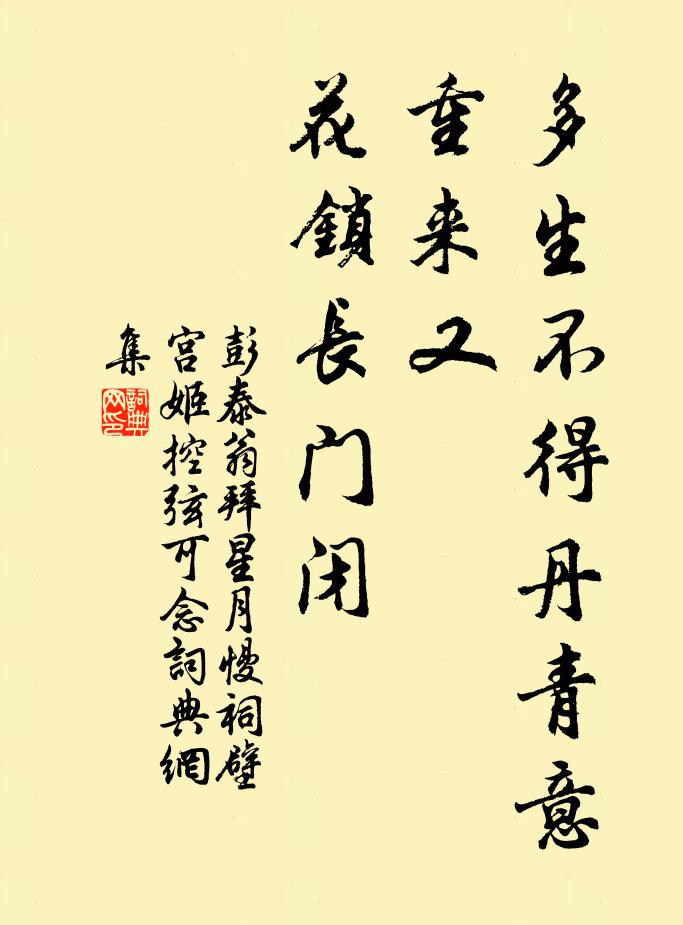 多生不得丹青意
重来又
花鎖長门闭
彭泰翁拜星月慢祠壁
宫姬控弦可念詞典網
集
詞典
网印